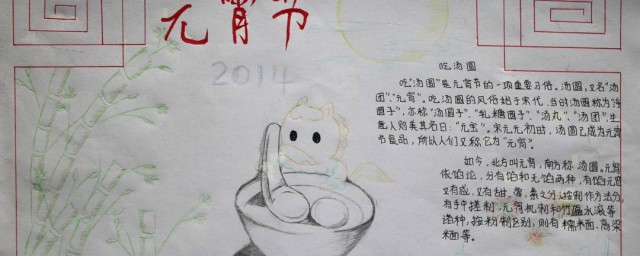 元宵节
2014
吃汤圆
吃"汤圆"是元宵节的一项重要习俗。汤圆,又名"汤
团"、"元宵"。吃汤圆的风俗始于宋代,当时汤圆称为"浮
圆子",亦称"汤圆子"、"乳糖圆子"、"汤丸"、"汤团",生
意人则美其名曰:"元宝"。宋元元初时,汤圆已成为元宵
节食品,所以人们又称它为"元宵"。
如今,北方叫元宵,南方称汤圆。元宵
依馅论,分有馅和无馅两种,有馅元宵
又有咸,又有甜、荤、素之分;按制作方法分,
有手搓制、元宵机制和竹匾水滚等
诸种,按粉制区别,则有糯米面、高粱
米面等。